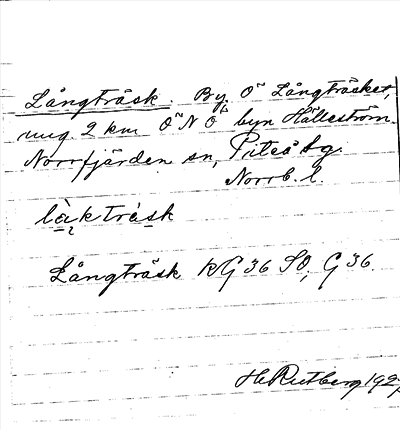 Långträsk. By, Ö Långträsket,
ung. 2 km ÖNÖ byn Hälleström.
Norrfjärden sn, Piteå tg.
Norrb. l.
låktràsk
Långträsk KG 36 SO, G 36.
H. Rutberg 192